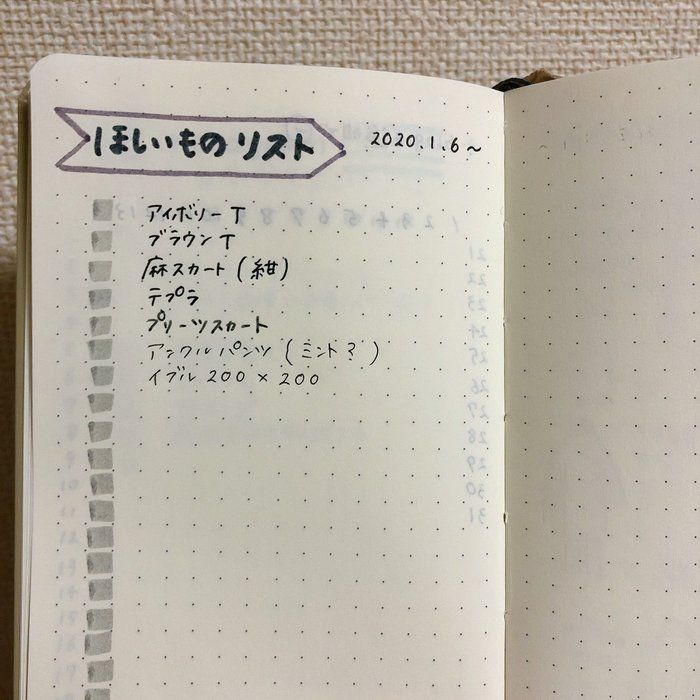 ほしいものリスト
2020.1.6~
アイボリーT
ブラウンT
麻スカート(紺)
テプラ
プリーツスカート
アンクルパンツ(ミント?)
イブル 200×200